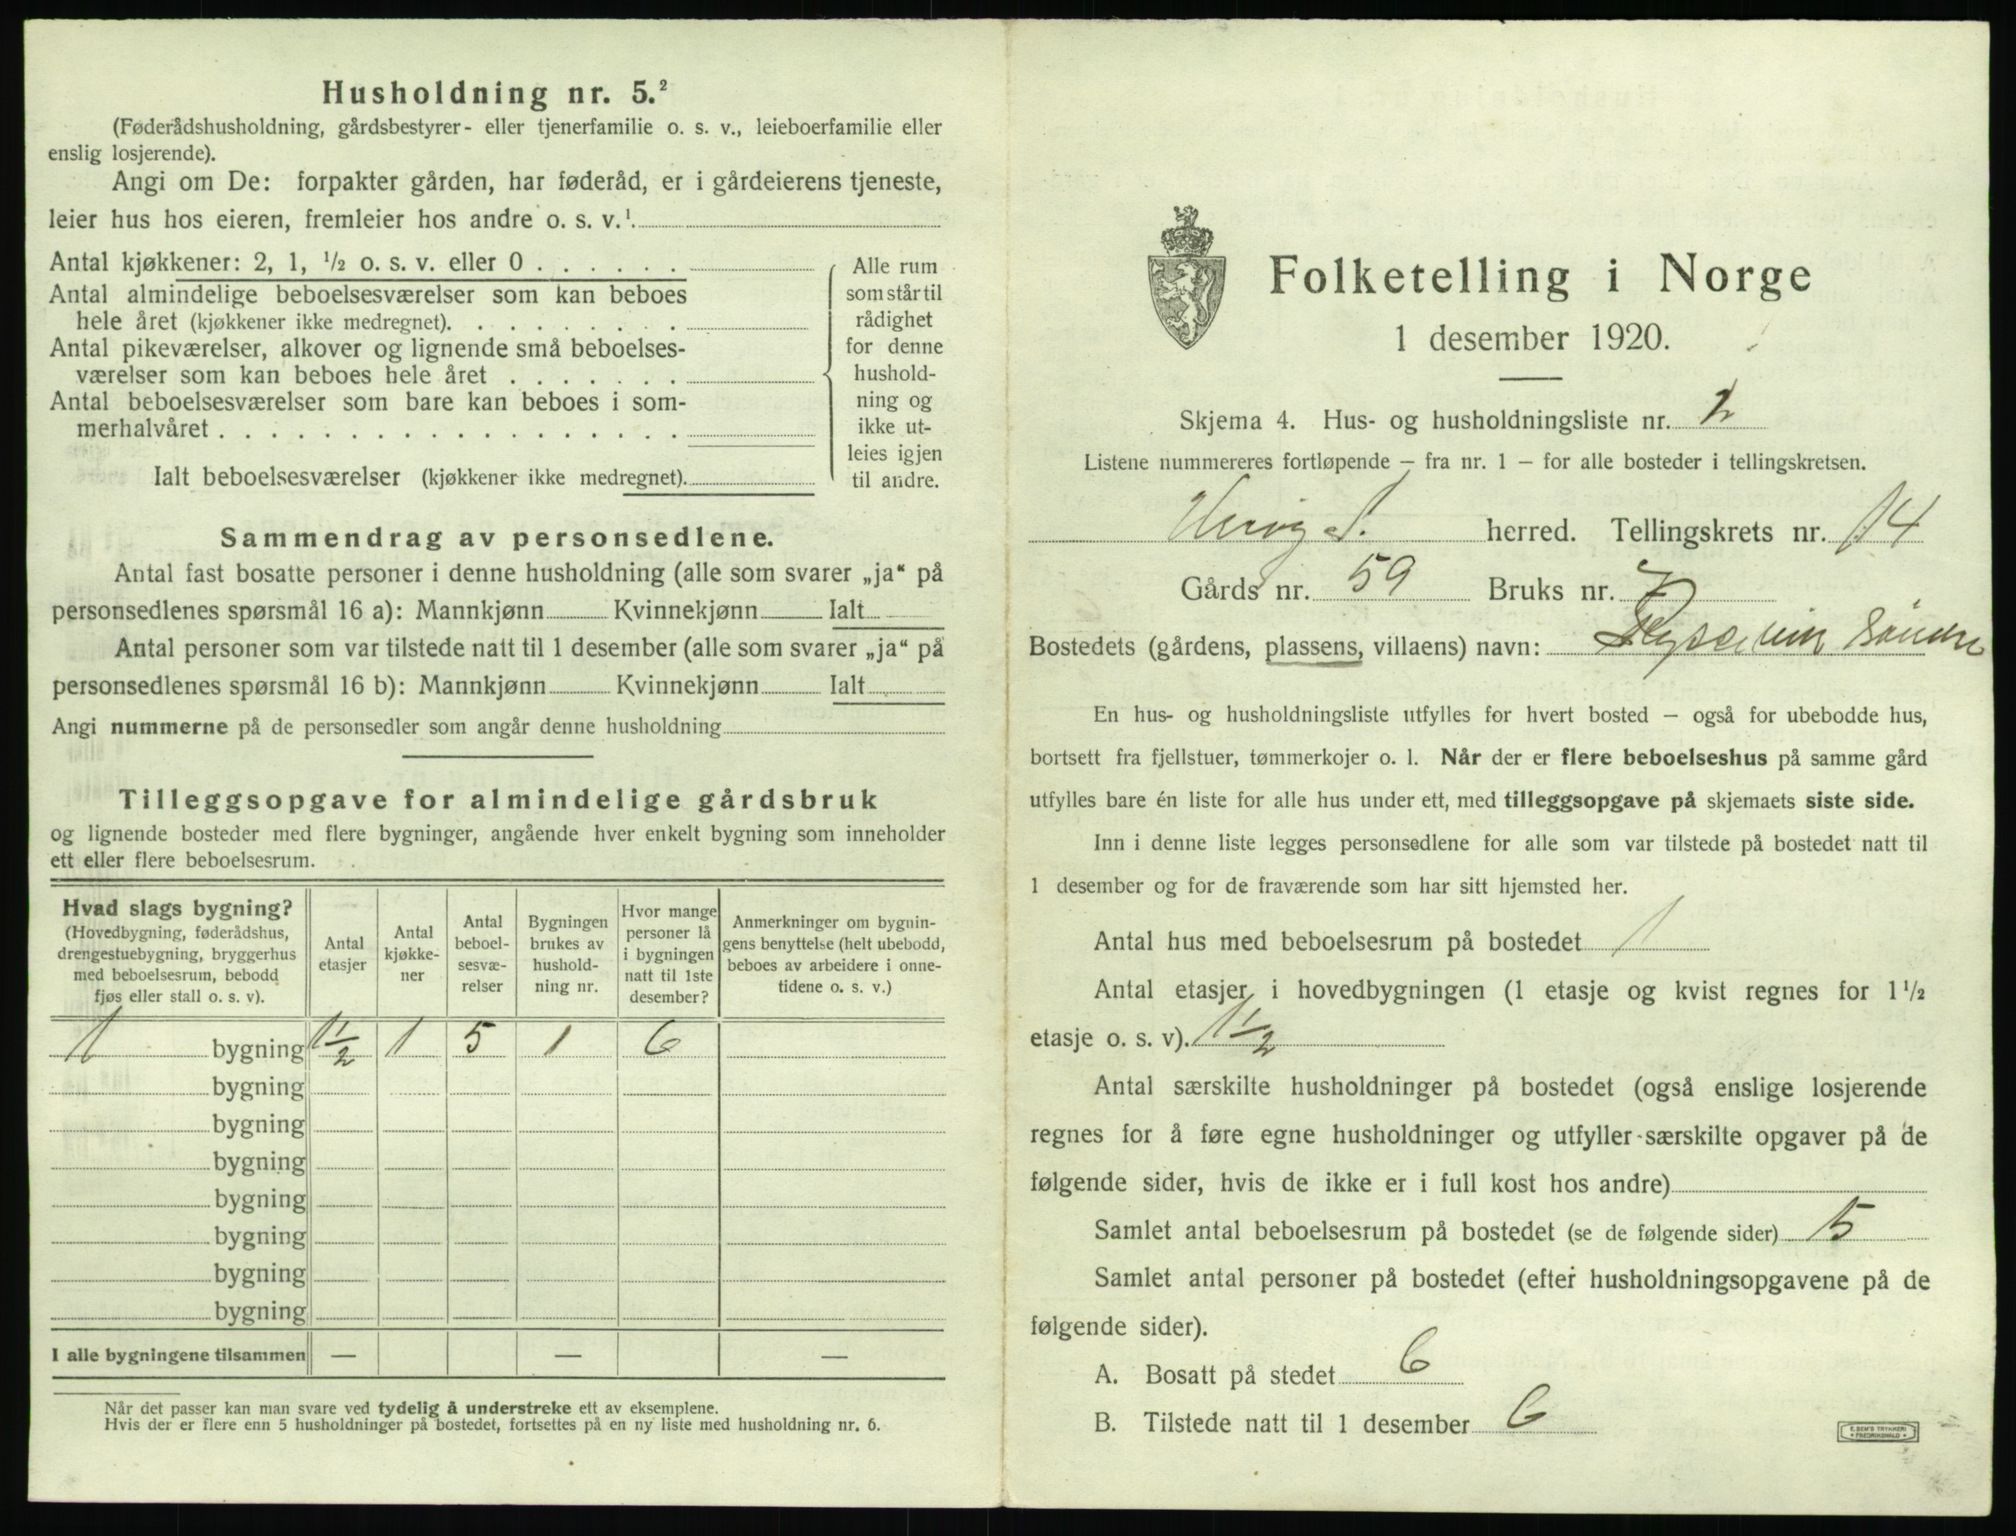 Husholdning nr. 5.²
(Føderådshusholdning, gårdsbestyrer- eller tjenerfamilie o. s. v., leieboerfamilie eller
enslig losjerende).
Angi om De: forpakter gården, har føderåd, er i gårdeierens tjeneste,
leier hus hos eieren, fremleier hos andre o. s. v.¹.
Antal kjøkkener: 2, 1, ½ o. s. v. eller 0 . . . . . .
Antal almindelige beboelsesværelser som kan beboes
hele året (kjøkkener ikke medregnet). . . . . . . . .
Antal pikeværelser, alkover og lignende små beboelses-
værelser som kan beboes hele året . . . . . . .
Antal beboelsesværelser som bare kan beboes i som-
merhalvåret . . . . . . . . . . . . . . . . . .
Ialt beboelsesværelser (kjøkkener ikke medregnet).
Alle rum
som står til
rådighet
for denne
hushold-
ning og
ikke ut-
leies igjen
til andre.
Sammendrag av personsedlene.
Antal fast bosatte personer i denne husholdning (alle som svarer „ja“ på
personsedlenes spørsmål 16 a): Mannkjønn Kvinnekjønn Ialt
Antal personer som var tilstede natt til 1 desember (alle som svarer „ja“ på
personsedlenes spørsmål 16 b): Mannkjønn Kvinnekjønn Ialt
Angi nummerne på de personsedler som angår denne husholdning
Tilleggsopgave for almindelige gårdsbruk
og lignende bosteder med flere bygninger, angående hver enkelt bygning som inneholder
ett eller flere beboelsesrum.
Hvad slags bygning?
(Hovedbygning, føderådshus,
drengestuebygning, bryggerhus
med beboelsesrum, bebodd
fjøs eller stall o. s. v).
Antal
etasjer
Antal
kjøkke-
ner
Antal
beboel-
sesvæ-
relser
Bygningen
brukes av
hushold-
ning nr.
Hvor mange
personer lå
i bygningen
natt til 1ste
desember?
Anmerkninger om bygnin-
gens benyttelse (helt ubebodd,
beboes av arbeidere i onne-
tidene o. s. v.)
1 bygning 1½ 1 5 1 6
bygning
bygning
bygning
bygning
bygning
bygning
bygning
I alle bygningene tilsammen — — —
Når det passer kan man svare ved tydelig å understreke ett av eksemplene.
Hvis der er flere enn 5 husholdninger på bostedet, fortsettes på en ny liste med husholdning nr. 6.
Folketelling i Norge
1 desember 1920.
Skjema 4. Hus- og husholdningsliste nr. 2
Listene nummereres fortløpende – fra nr. 1 – for alle bosteder i tellingskretsen.
herred. Tellingskrets nr. 14
Gårds nr. 59 Bruks nr. 7
Bostedets (gårdens, plassens, villaens) navn:
En hus- og husholdningsliste utfylles for hvert bosted – også for ubebodde hus,
bortsett fra fjellstuer, tømmerkojer o. l. Når der er flere beboelseshus på samme gård
utfylles bare én liste for alle hus under ett, med tilleggsopgave på skjemaets siste side.
Inn i denne liste legges personsedlene for alle som var tilstede på bostedet natt til
1 desember og for de fraværende som har sitt hjemsted her.
Antal hus med beboelsesrum på bostedet 1
Antal etasjer i hovedbygningen (1 etasje og kvist regnes for 1½
etasje o. s. v). 1½
Antal særskilte husholdninger på bostedet (også enslige losjerende
regnes for å føre egne husholdninger og utfyller særskilte opgaver på de
følgende sider, hvis de ikke er i full kost hos andre)
Samlet antal beboelsesrum på bostedet (se de følgende sider) 5
Samlet antal personer på bostedet (efter husholdningsopgavene på de
følgende sider).
A. Bosatt på stedet 6
B. Tilstede natt til 1 desember 6
E. SEM'S TRYKKERI
FREDRIKSHALD